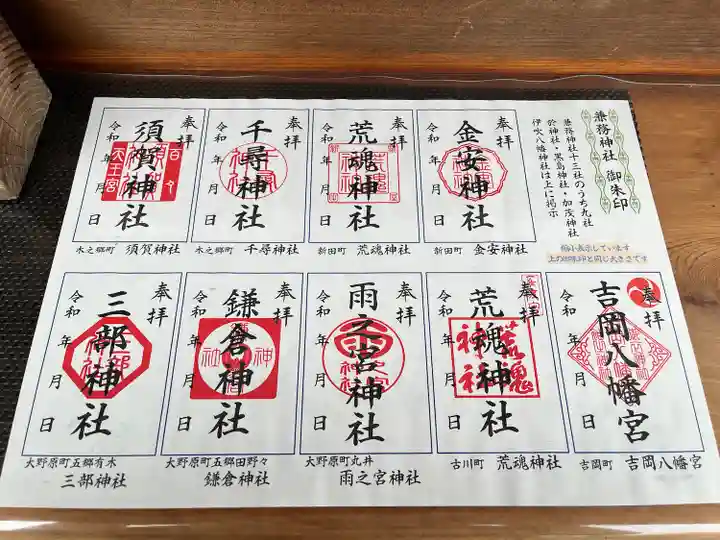 兼務神社 御朱印
兼務神社十三社のうち九社
於神社・黒島神社・加茂神社
伊吹八幡神社は上に掲示
縮小表示しています
上の御朱印と同じ大きさです
奉拝
金安神社
令和 年 月 日
新田町 金安神社
奉拝
荒魂神社
令和 年 月 日
新田町 荒魂神社
奉拝
千尋神社
令和 年 月 日
木之郷町 千尋神社
奉拝
須賀神社
天王宮
令和 年 月 日
木之郷町 須賀神社
奉拝
吉岡八幡宮
令和 年 月 日
吉岡町 吉岡八幡宮
奉拝
荒魂神社
荒魂
神社
令和 年 月 日
古川町 荒魂神社
奉拝
雨之宮神社
令和 年 月 日
大野原町丸井
雨之宮神社
奉拝
鎌倉神社
神
社
令和 年 月 日
大野原町五郷田野々
鎌倉神社
奉拝
三部神社
令和 年 月 日
大野原町五郷有木
三部神社